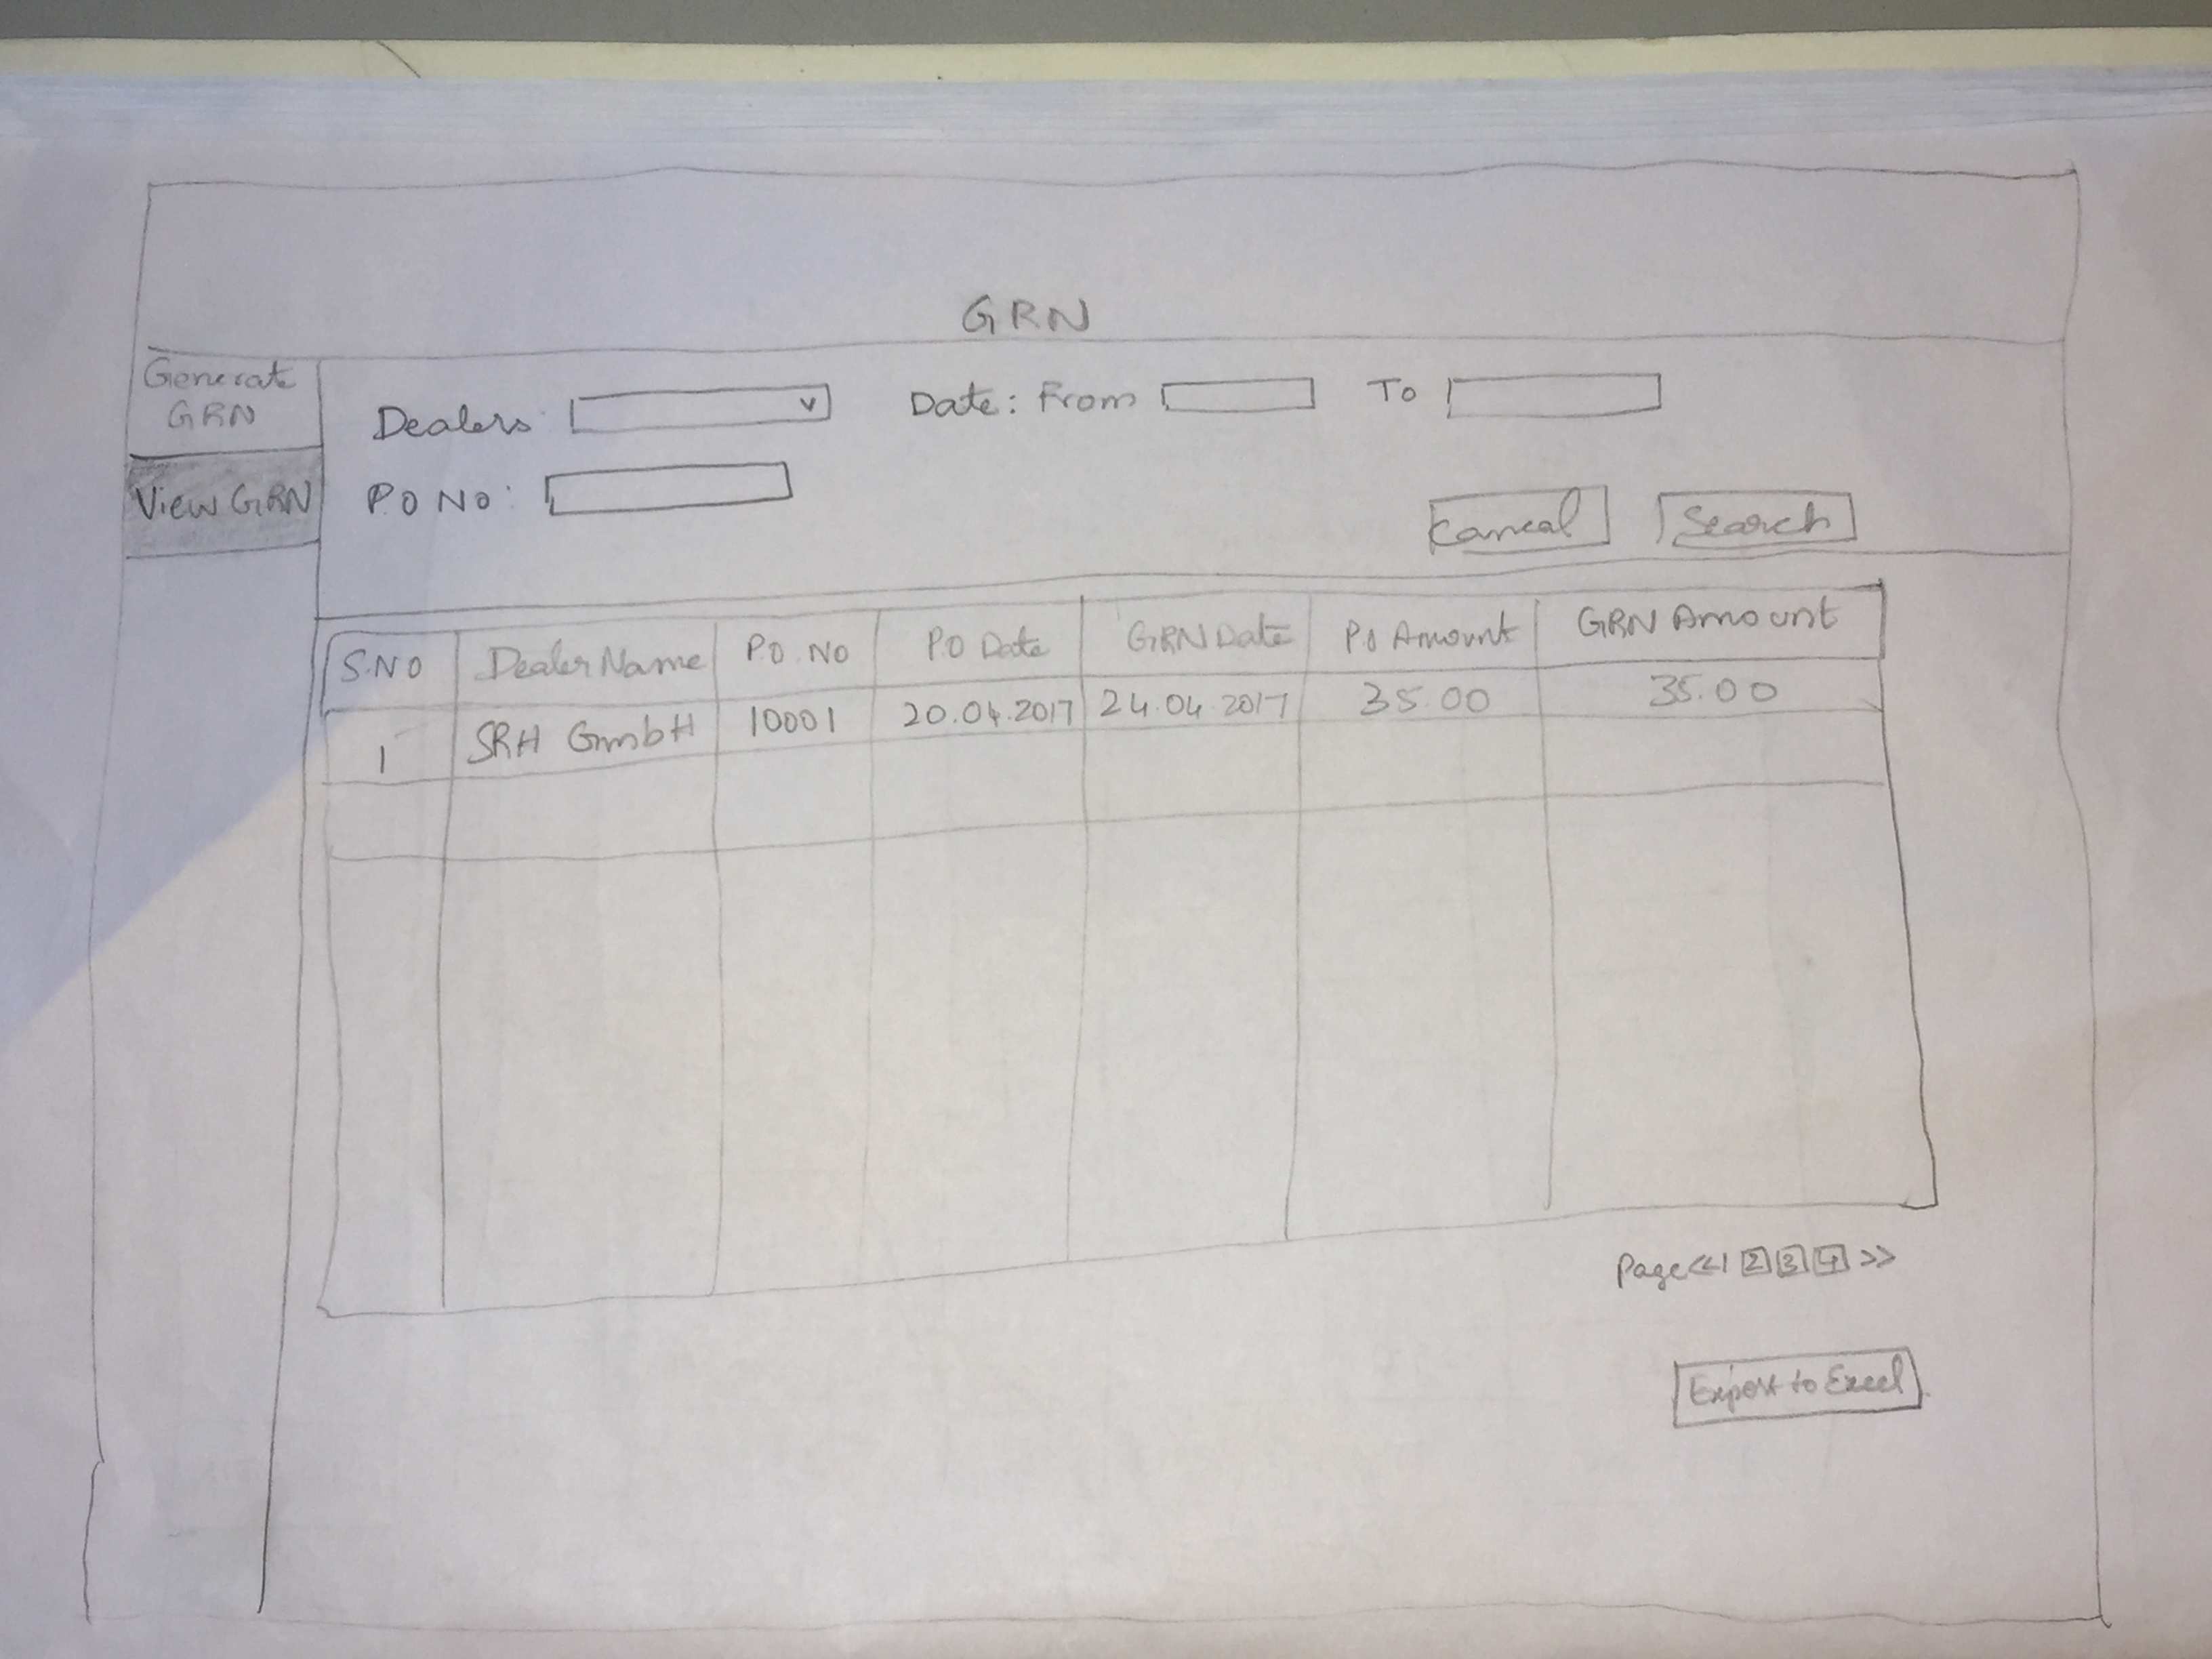 GRN
Generate
GRN
View GRN
Dealers
Date: From
To
P.O No:
Cancal
Search
S.NO
Dealer Name
P.O. NO
P.O Date
GRN Date
PO Amount
GRN Amount
1
SRH GmbH
10001
20.04.2017
24.04.2017
35.00
35.00
Page << 1 2 3 4 >>
Export to Excel